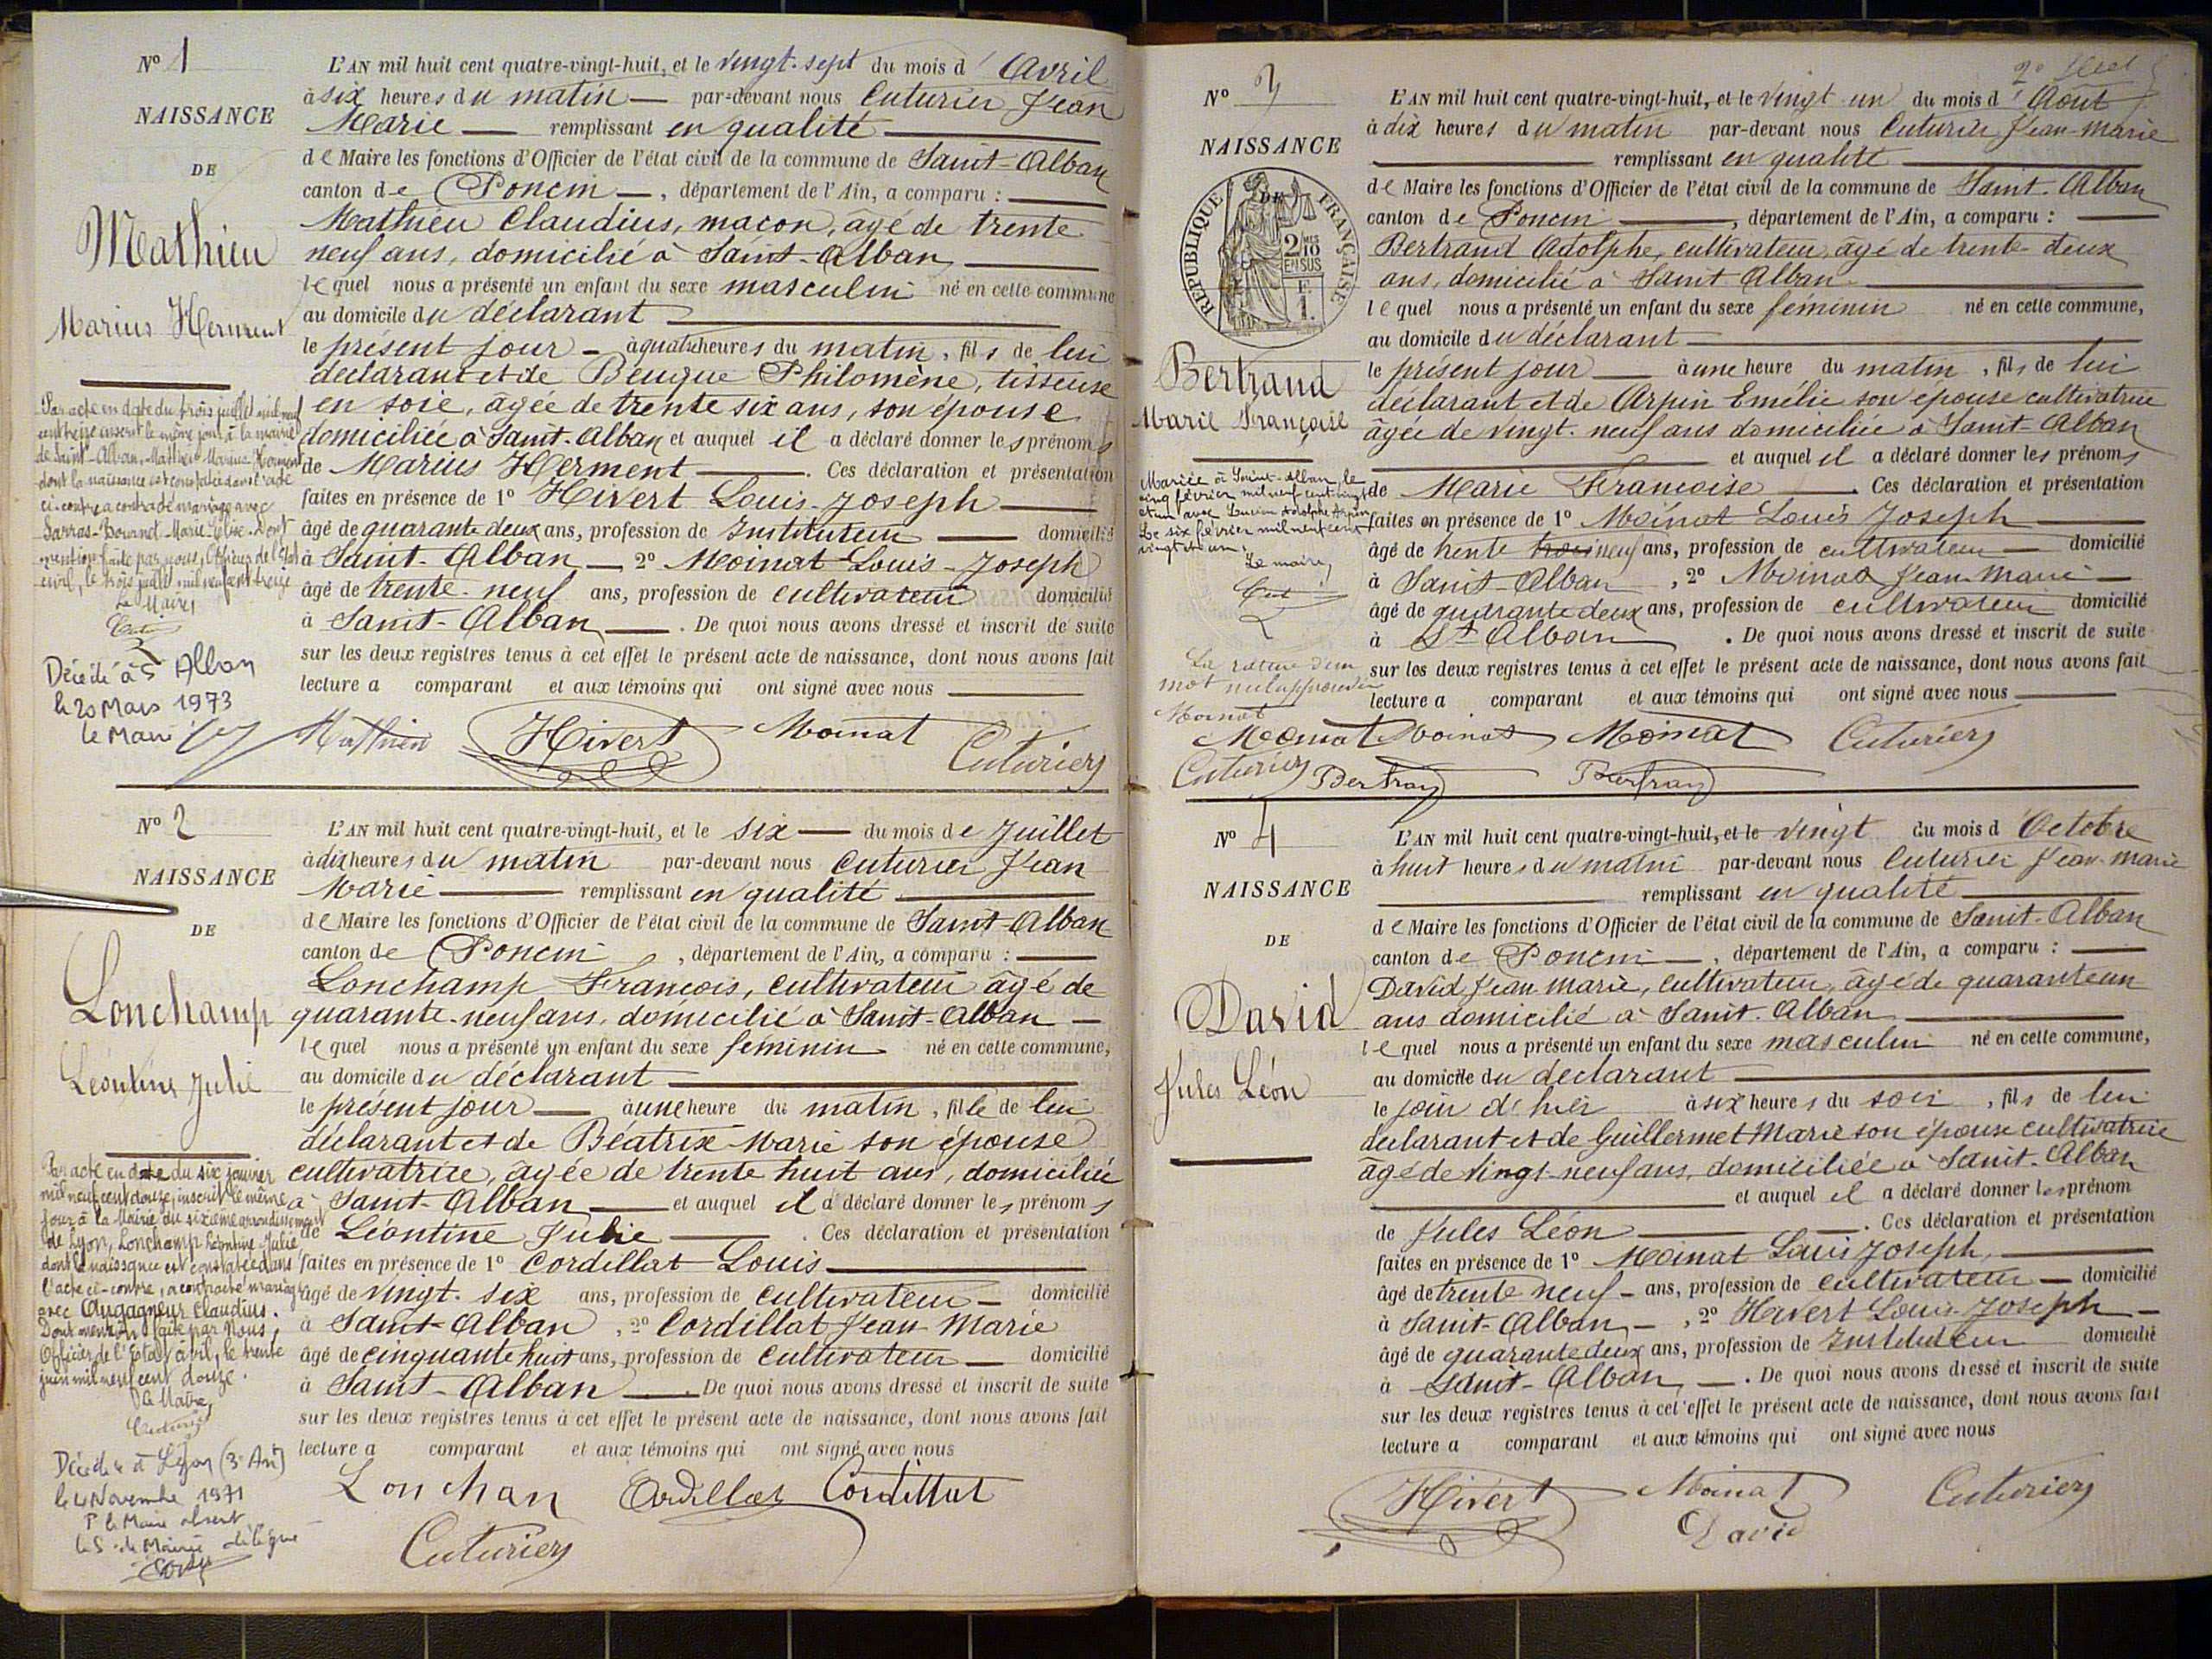 N° 1
NAISSANCE
DE
Mathieu
Marius Herment
L'AN mil huit cent quatre-vingt-huit, et le vingt-sept du mois d'Avril
à six heures du matin — par-devant nous Cuturier Jean
Marie — remplissant en qualité
de Maire les fonctions d'Officier de l'état civil de la commune de Saint-Alban
canton de Poncin —, département de l'Ain, a comparu :
Mathieu Claudius, maçon, âgé de trente
neuf ans, domicilié à Saint-Alban
lequel nous a présenté un enfant du sexe masculin né en cette commune
au domicile du déclarant
le présent jour — à quatre heures du matin, fils de lui
déclarant et de Beugue Philomène, tisseuse
en soie, âgée de trente six ans, son épouse
domiciliée à Saint-Alban et auquel il a déclaré donner les prénoms
de Marius Herment — . Ces déclaration et présentation
faites en présence de 1° Hivert Louis-Joseph
âgé de quarante deux ans, profession de Instituteur — domicilié
à Saint-Alban — 2° Moinat Louis-Joseph
âgé de trente-neuf ans, profession de cultivateur domicilié
à Saint-Alban — . De quoi nous avons dressé et inscrit de suite
sur les deux registres tenus à cet effet le présent acte de naissance, dont nous avons fait
lecture a comparant et aux témoins qui ont signé avec nous
Par acte en date du trois juillet mil neuf
cent treize inscrit le même jour à la mairie
de Saint-Alban, Mathieu Marius Herment
dont la naissance est constatée dans l'acte
ci-contre a contracté mariage avec
Marie-Elise. Dont
mention faite par nous, Officier de l'Etat
civil, le trois juillet mil neuf cent treize
Le Maire,
Décédé à St Alban
le 20 Mars 1973
le Maire
Mathieu Hivert Moinat Cuturier
N° 2
NAISSANCE
DE
Lonchamp
Léontine Julie
L'AN mil huit cent quatre-vingt-huit, et le six — du mois de Juillet
à dix heures du matin par-devant nous Cuturier Jean
Marie — remplissant en qualité
de Maire les fonctions d'Officier de l'état civil de la commune de Saint-Alban
canton de Poncin, département de l'Ain, a comparu :
Lonchamp François, cultivateur âgé de
quarante-neuf ans, domicilié à Saint-Alban —
lequel nous a présenté un enfant du sexe féminin né en cette commune,
au domicile du déclarant
le présent jour — à une heure du matin, fille de lui
déclarant et de Béatrix Marie son épouse
cultivatrice, âgée de trente huit ans, domiciliée
à Saint-Alban — et auquel il a déclaré donner les prénoms
de Léontine Julie — . Ces déclaration et présentation
faites en présence de 1° Cordillat Louis
âgé de vingt-six ans, profession de cultivateur — domicilié
à Saint-Alban, 2° Cordillat Jean Marie
âgé de cinquante huit ans, profession de cultivateur — domicilié
à Saint-Alban — . De quoi nous avons dressé et inscrit de suite
sur les deux registres tenus à cet effet le présent acte de naissance, dont nous avons fait
lecture a comparant et aux témoins qui ont signé avec nous
Par acte en date du six janvier
mil neuf cent douze, inscrit le même
jour à la Mairie du sixième arrondissement
de Lyon, Lonchamp Léontine Julie,
dont la naissance est constatée dans
l'acte ci-contre, a contracté mariage
avec Augagneur Claudius.
Dont mention faite par Nous,
Officier de l'Etat civil, le trente
juin mil neuf cent douze.
Le Maire,
Cuturier
Décédée à Lyon (3e Arrt)
le 4 Novembre 1971
P le Maire absent
le S. de Mairie délégué
Lonchan Cordillat Cordillat
Cuturier
N° 3
NAISSANCE
RÉPUBLIQUE FRANÇAISE
DE
2/10 MES
EN SUS
F.
1.
Bertrand
Marie Françoise
L'AN mil huit cent quatre-vingt-huit, et le vingt un du mois d'Août
à dix heures du matin par-devant nous Cuturier Jean-Marie
remplissant en qualité
de Maire les fonctions d'Officier de l'état civil de la commune de Saint-Alban
canton de Poncin —, département de l'Ain, a comparu :
Bertrand Adolphe, cultivateur, âgé de trente-deux
ans, domicilié à Saint-Alban
lequel nous a présenté un enfant du sexe féminin né en cette commune,
au domicile du déclarant
le présent jour — à une heure du matin, fils de lui
déclarant et de Arpin Emélie son épouse cultivatrice
âgée de vingt-neuf ans domiciliée à Saint-Alban
et auquel il a déclaré donner les prénoms
de Marie Françoise — . Ces déclaration et présentation
faites en présence de 1° Moinat Louis Joseph
âgé de trente trois neuf ans, profession de cultivateur — domicilié
à Saint-Alban, 2° Moinat Jean-Marie —
âgé de quarante deux ans, profession de cultivateur domicilié
à St Alban . De quoi nous avons dressé et inscrit de suite
sur les deux registres tenus à cet effet le présent acte de naissance, dont nous avons fait
lecture a comparant et aux témoins qui ont signé avec nous
Mariée à Saint-Alban le
cinq février mil neuf cent vingt
et un avec Lucien Adolphe Arpin
Le six février mil neuf cent
vingt et un.
Le maire,
La rature d'un
mot nul approuvée
Moinat
Moinat Moinat Moinat Cuturier
Cuturier Bertrand Bertrand
N° 4
NAISSANCE
DE
David
Jules Léon
L'AN mil huit cent quatre-vingt-huit, et le vingt du mois d'Octobre
à huit heures du matin par-devant nous Cuturier Jean-Marie
remplissant en qualité
de Maire les fonctions d'Officier de l'état civil de la commune de Saint-Alban
canton de Poncin —, département de l'Ain, a comparu :
David Jean Marie, cultivateur, âgé de quarante un
ans domicilié à Saint-Alban
lequel nous a présenté un enfant du sexe masculin né en cette commune,
au domicile du déclarant
le jour d'hier à six heures du soir, fils de lui
déclarant et de Guillermet Marie son épouse cultivatrice
âgé de vingt-neuf ans, domiciliée à Saint-Alban
et auquel il a déclaré donner les prénom
de Jules Léon — . Ces déclaration et présentation
faites en présence de 1° Moinat Louis Joseph
âgé de trente neuf — ans, profession de cultivateur — domicilié
à Saint-Alban —, 2° Hivert Louis-Joseph —
âgé de quarante deux ans, profession de Instituteur domicilié
à Saint-Alban — . De quoi nous avons dressé et inscrit de suite
sur les deux registres tenus à cet effet le présent acte de naissance, dont nous avons fait
lecture a comparant et aux témoins qui ont signé avec nous
Hivert Moinat Cuturier
David